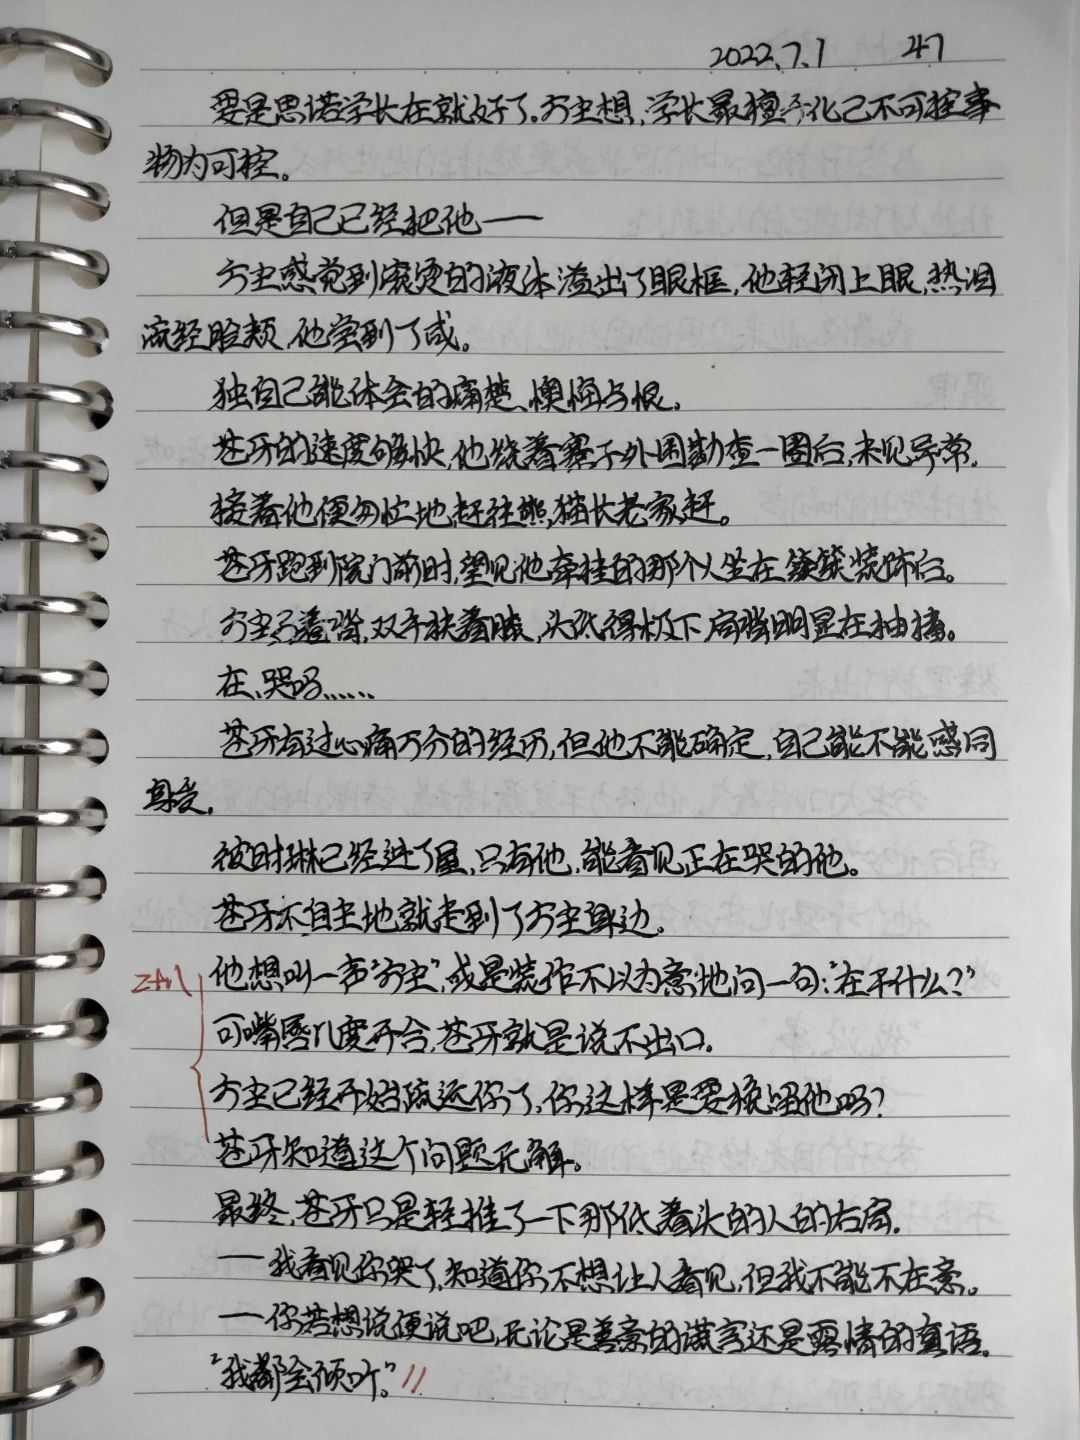 2022.7.1 47
要是思诺学长在就好了。方虫想,学长最擅于化己不可控事
物为可控。
但是自己已经把他——
方虫感觉到滚烫的液体溢出了眼框,他轻闭上眼,热泪
流经脸颊,他尝到了咸。
独自己能体会的痛楚、懊悔与恨。
苍牙的速度够快,他绕着寨子外围勘查一圈后,未见异常,
接着他便匆忙地赶往熊猫长老家赶。
苍牙跑到院门前时,望见他牵挂的那个人坐在簇簇装饰后。
方虫弓着背,双手扶着膝,头低得极下,肩膀明显在抽搐。
在,哭吗……
苍牙有过心痛万分的经历,但他不能确定,自己能不能感同
身受。
彼时琳已经进了屋,只有他,能看见正在哭的他。
苍牙不自主地就走到了方虫身边。
他想叫一声“方虫”,或是装作不以为意地问一句:“在干什么?”
可嘴唇几度开合,苍牙就是说不出口。
方虫已经开始疏远你了,你这样是要挽留他吗?
苍牙知道这个问题无解。
最终,苍牙只是轻推了一下那低着头的人的右肩。
——我看见你哭了,知道你不想让人看见,但我不能不在意。
——你若想说便说吧,无论是善意的谎言还是露情的真语。
“我都会倾听。”//